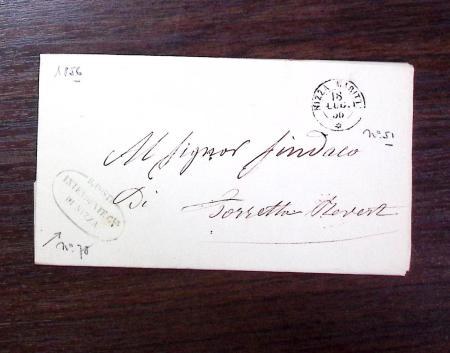 1856
NIZZA MARITT.
18
LUG.
56
n.º 51
Al Signor Sindaco
Di Torretta Revest
R. POSTE
INTENDENZA GLE
DI NIZZA
n.º 78